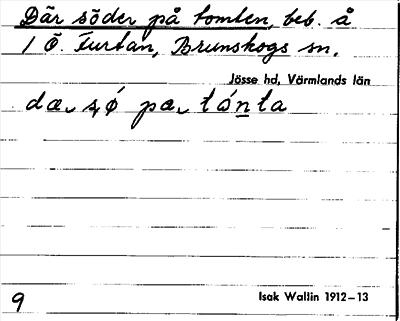 Där söder på tomten, beb. å
1 Ö. Furtan, Brunskogs sn.
Jösse hd, Värmlands län
9
Isak Wallin 1912–13